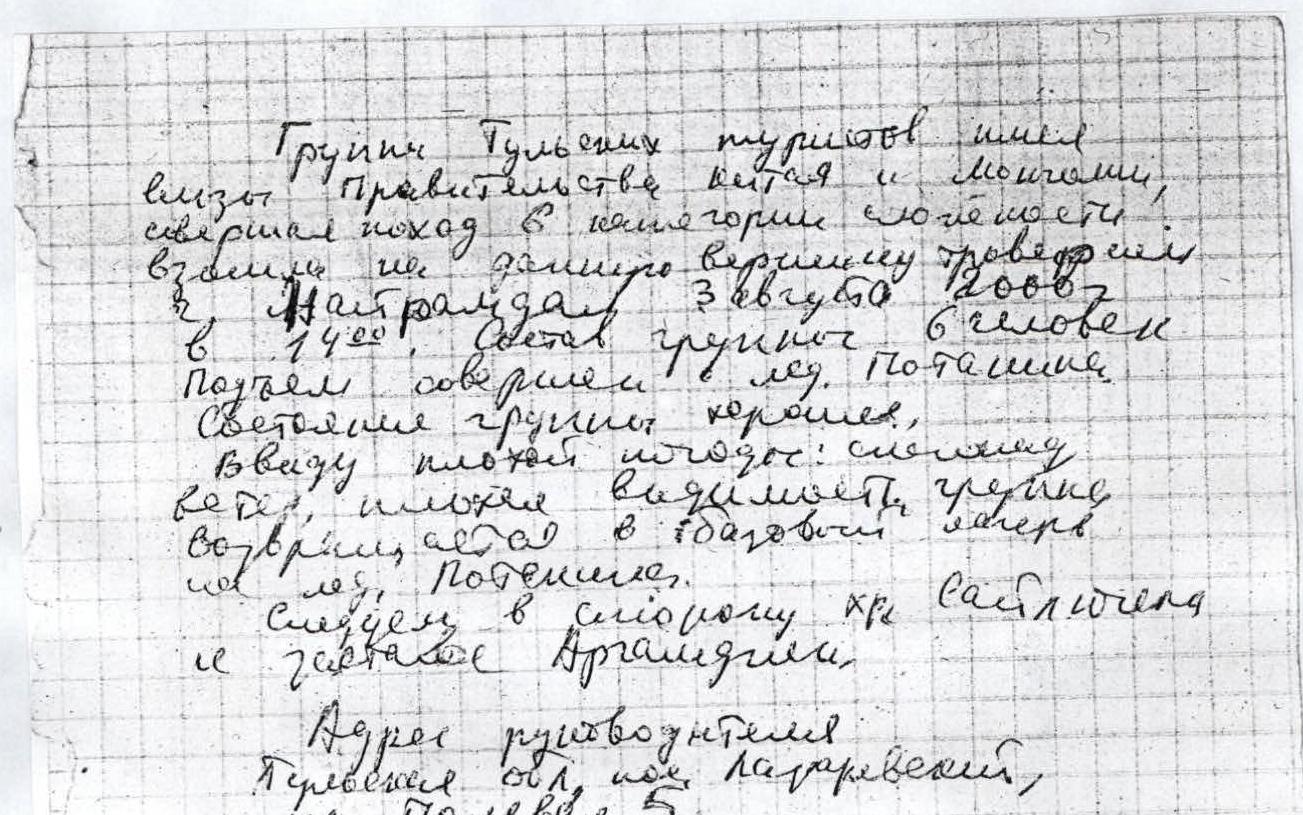 Группа Тульских туристов имея
визы Правительства Китая и Монголии,
совершая поход 6 категории сложности
взошла на данную вершину траверсом
г. Найрамдал 3 августа 2000г
в 14⁰⁰. Состав группы 6 человек
Подъем совершен с лед. Потанина.
Состояние группы хорошее,
Ввиду плохой погоды: снегопад
ветер, плохая видимость, группа
возвращается в базовый лагерь
на лед. Потанина.
Следуем в сторону хр. Сайлюгема
и заставе Аргамджи.
Адрес руководителя
Тульская обл, пос Лазаревский,
Полевая 5